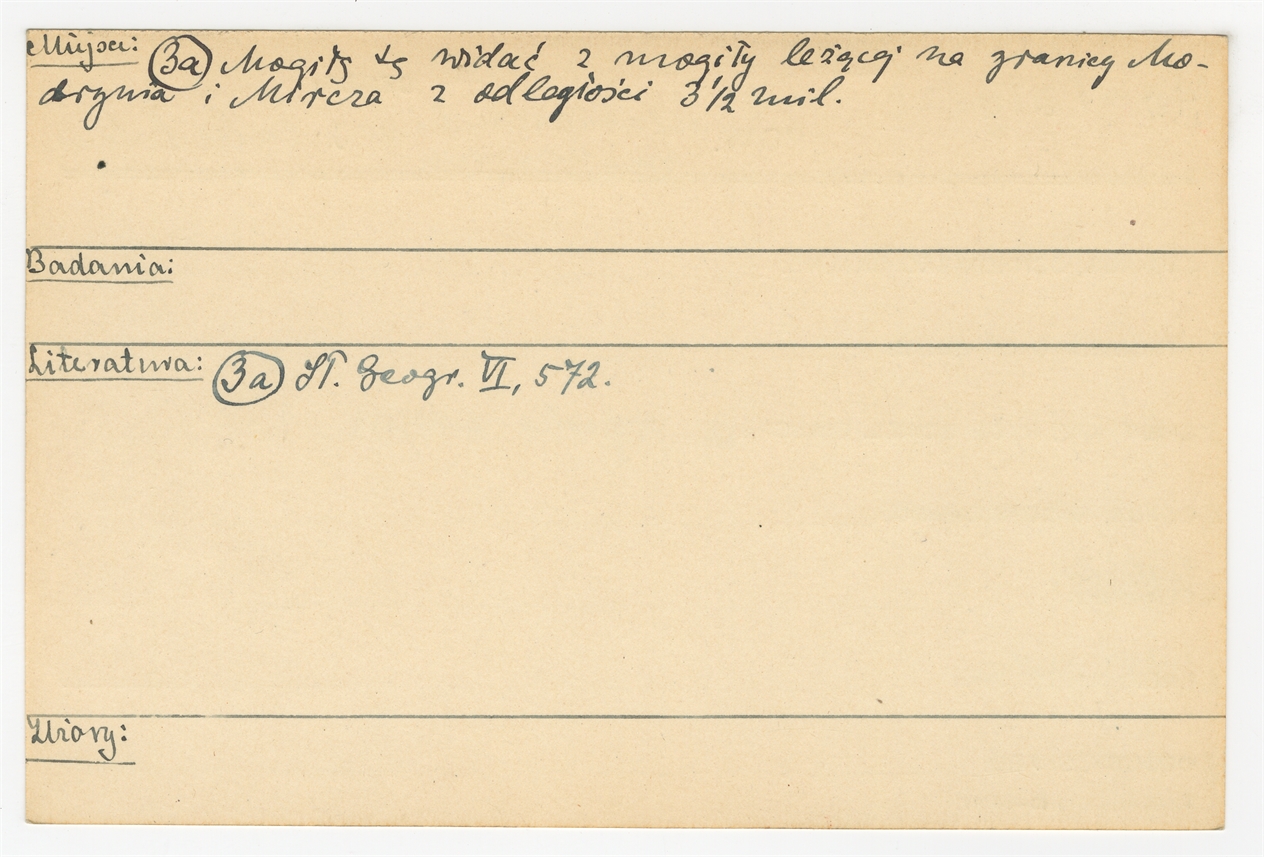 Miejsce: (3a) Mogiłę tę widać z mogiły leżącej na granicy Mo-
drynia i Mircza z odległości 3 1/2 mil.
Badania:
Literatura: (3a) Sł. Geogr. VI, 572.
Zbiory: